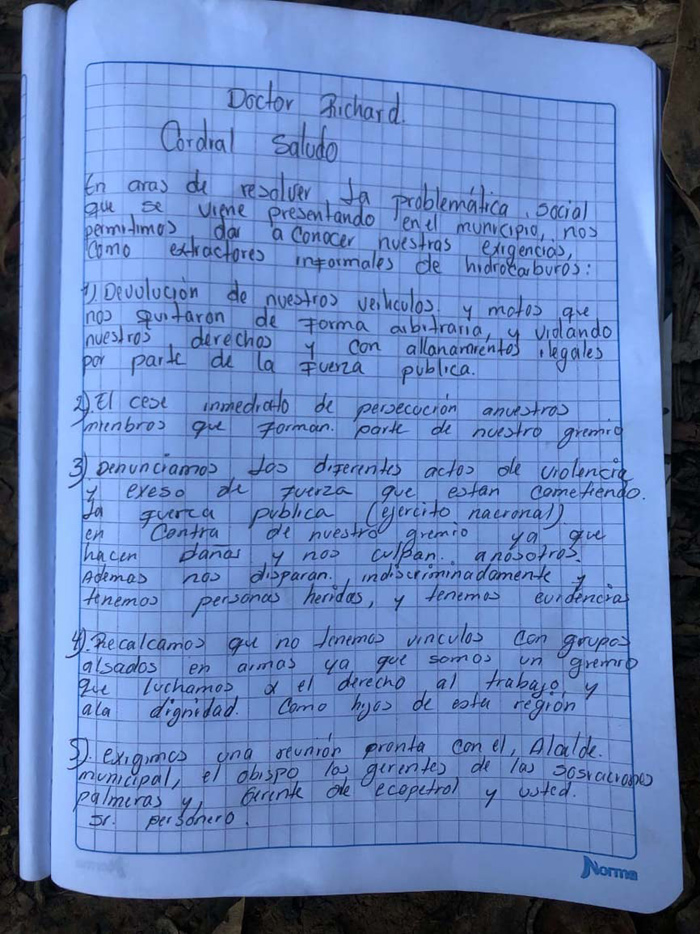 Doctor Richard.
Cordial Saludo
En aras de resolver la problemática social
que se viene presentando en el municipio, nos
permitimos dar a conocer nuestras exigencias,
como extractores informales de hidrocarburos:
1) Devolución de nuestros vehiculos y motos que
nos quitaron de forma arbitraria, y violando
nuestros derechos y con allanamientos ilegales
por parte de la fuerza publica.
2) El cese inmediato de persecución anuestros
mienbros que forman. parte de nuestro gremio
3) Denunciamos los diferentes actos de violencia
y exeso de fuerza que estan cometiendo.
la fuerca publica (ejercito nacional)
en contra de nuestro gremio ya que
hacen daños y nos culpan. anosotros.
Ademas nos disparan. indiscriminadamente y
tenemos personas heridas, y tenemos evidencias
4) Recalcamos que no tenemos vinculos con grupos
alsados en armas ya que somos un gremio
que luchamos x el derecho al trabajo, y
ala dignidad. Como hijos de esta región
5). exigimos una reunión pronta con el, Alcalde.
municipal, el obispo los gerentes de las
palmeras y, Gerente de ecopetrol y usted.
sr. personero.
Norma